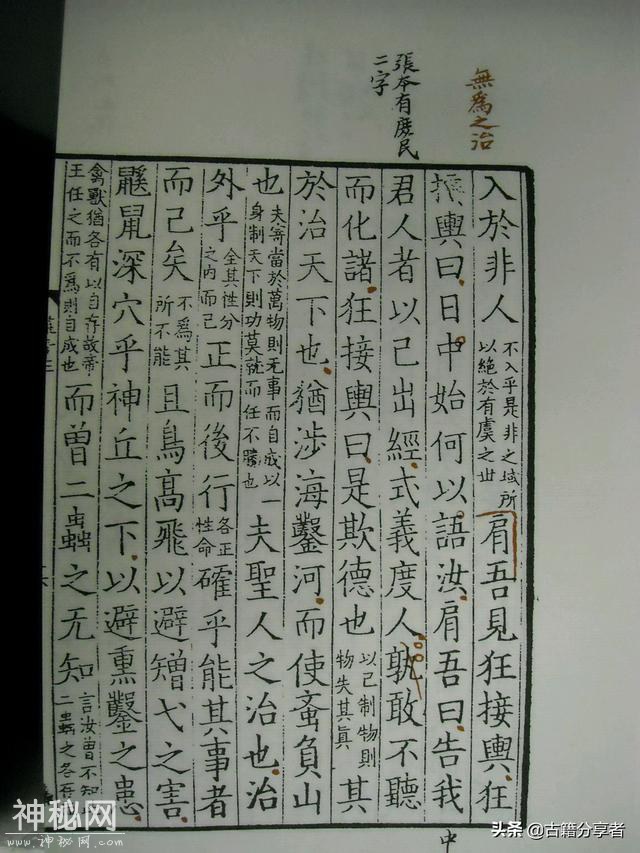 無爲之治
張本有庶民
二字
入於非人不入乎是非之域所以絕於有虞之世肩吾見狂接輿狂
接輿曰日中始何以語汝肩吾曰告我
君人者以己出經式義度人孰敢不聽
而化諸狂接輿曰是欺德也以己制物則物失其真其
於治天下也猶涉海鑿河而使蚉負山
也夫寄當於萬物則无事而自成以一身制天下則功莫就而任不勝也夫聖人之治也治
外乎全其性分之内而已正而後行各正性命確乎能其事者
而已矣不爲其所不能且鳥高飛以避矰弋之害
鼷鼠深穴乎神丘之下以避熏鑿之患
禽獸猶各有以自存故帝王任之而不爲則自成也而曾二蟲之无知言汝曾不知二蟲之各存
中
神秘网
www.神秘网.com
头条 @古籍分享者